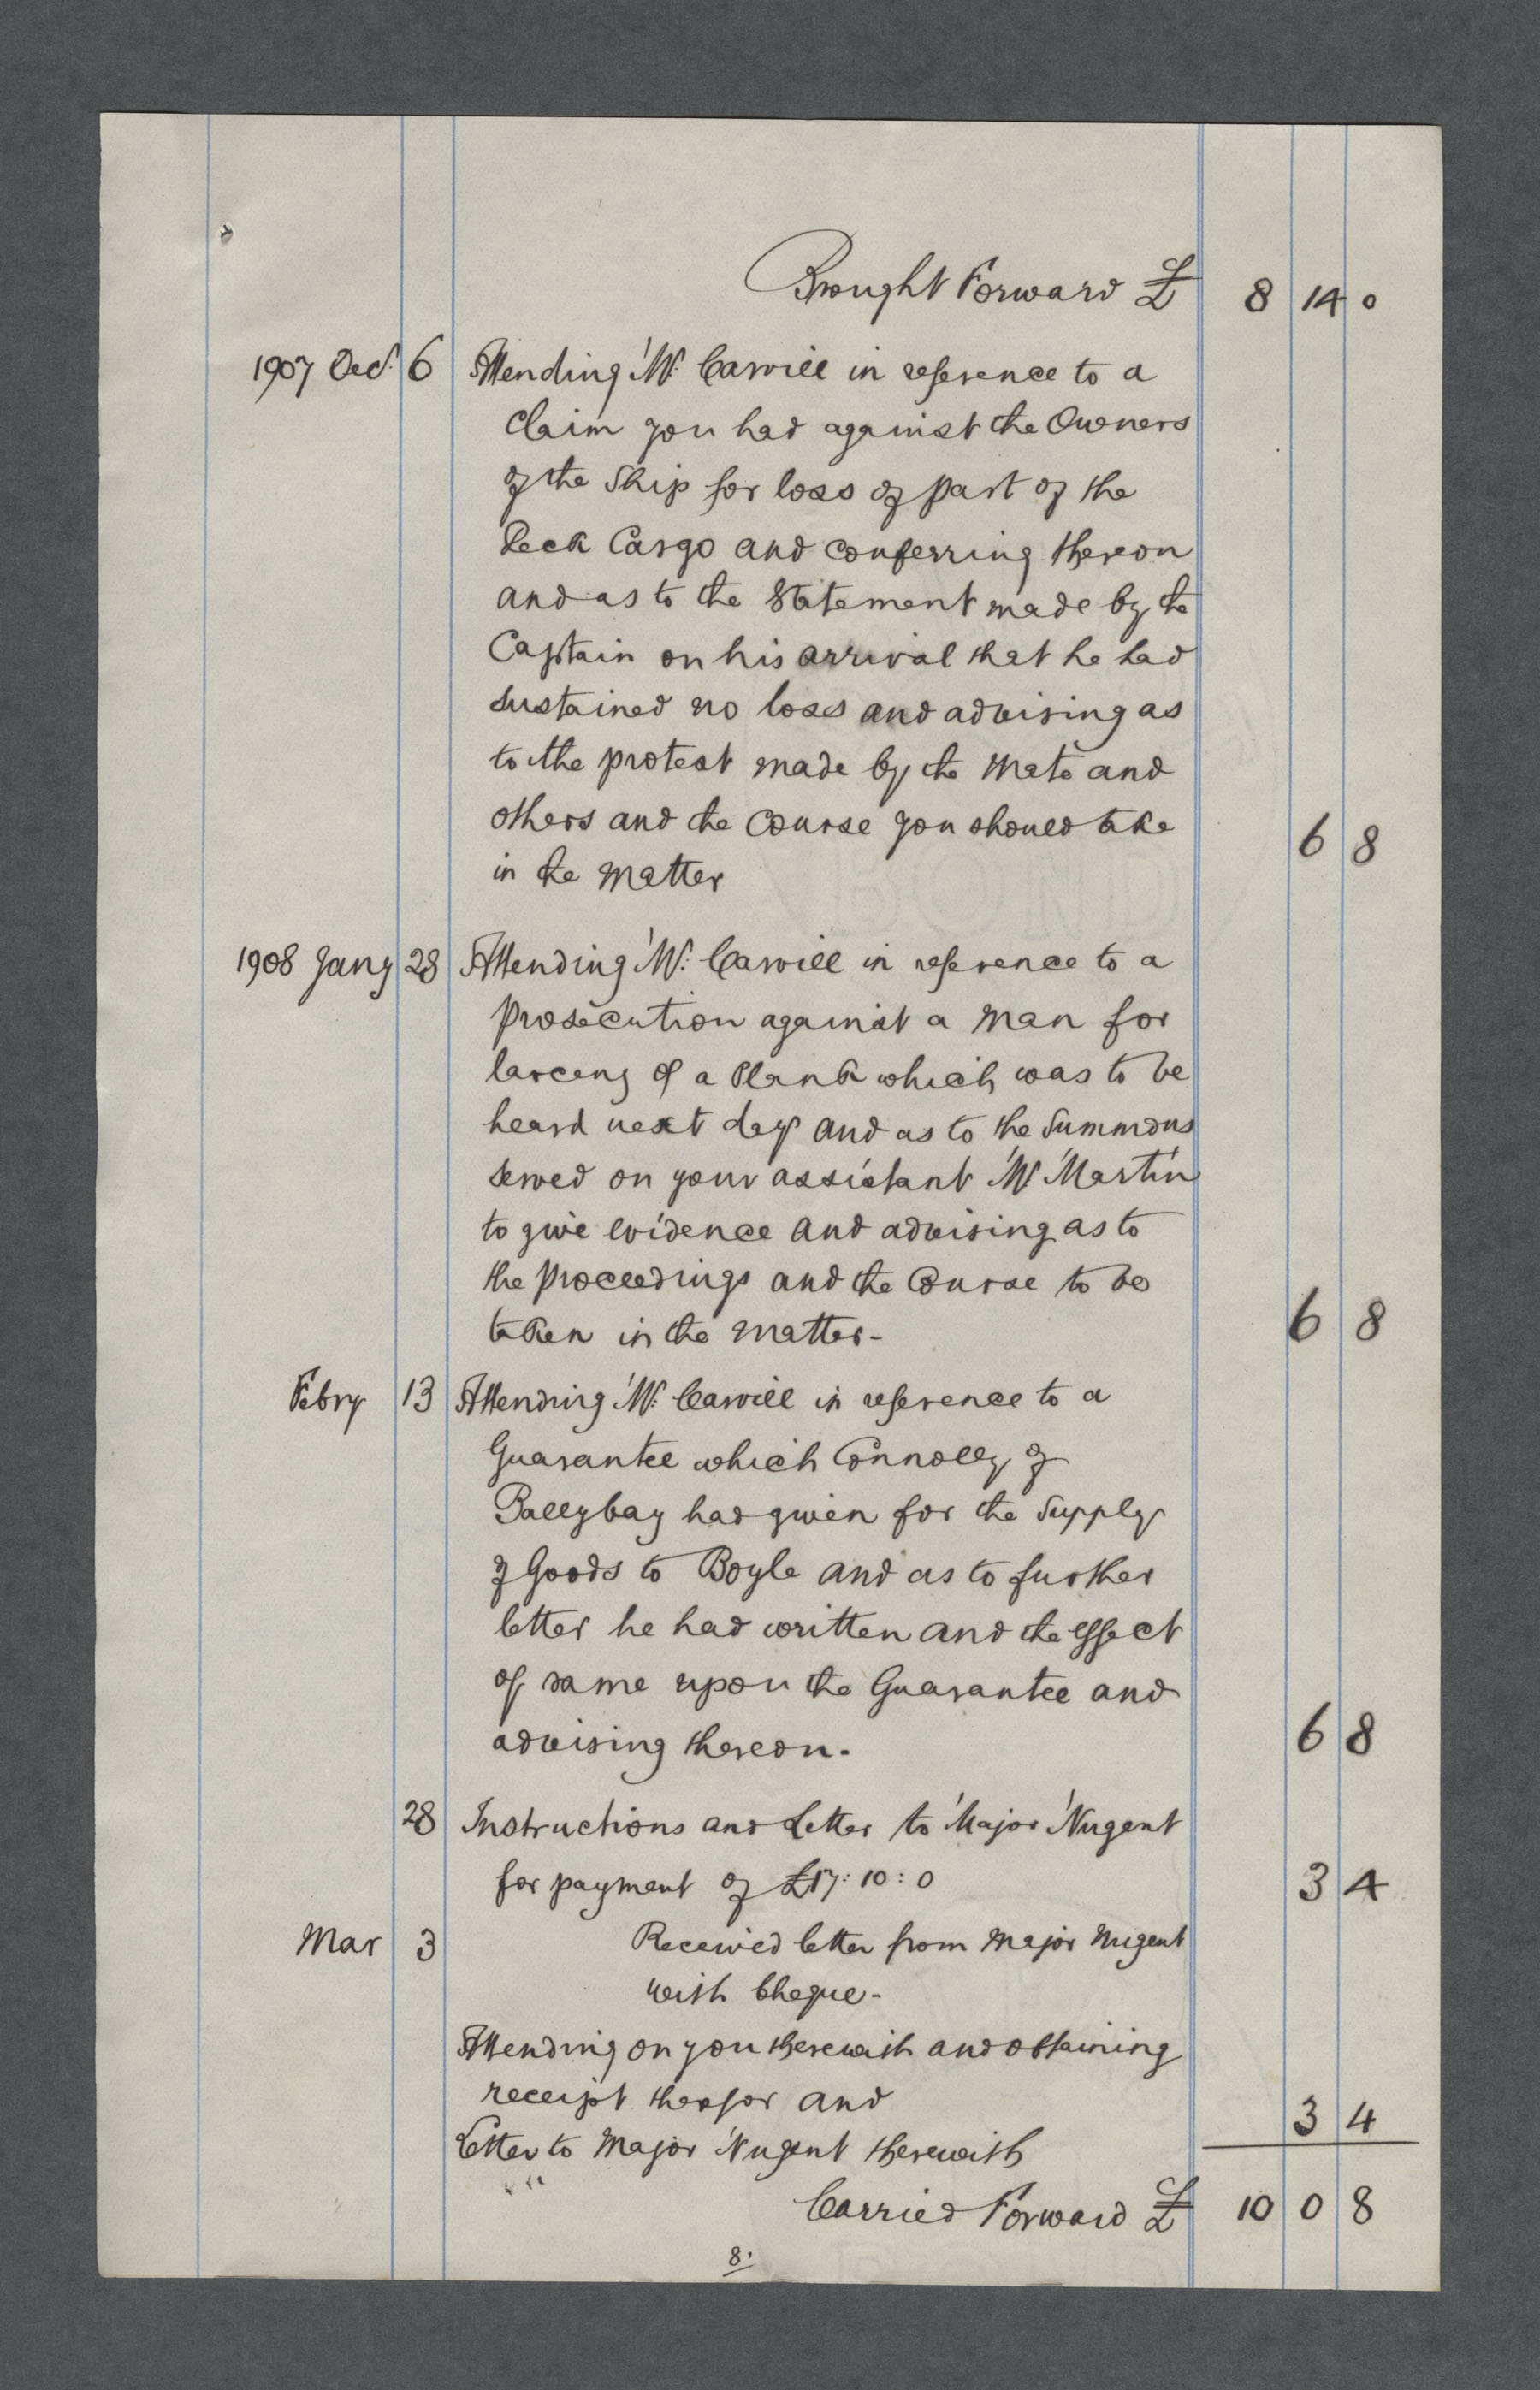 Brought Forward £ 8 14 0
1907 Oct. 6 Attending Mr. Carvill in reference to a
claim you had against the Owners
of the Ship for loss of part of the
Deck Cargo and conferring thereon
and as to the Statement made by the
Captain on his arrival that he had
sustained no loss and advising as
to the protest made by the Mate and
others and the Course you should take 6 8
in the matter
1908 Jany 28 Attending Mr. Carvill in reference to a
prosecution against a man for
larceny of a Plank which was to be
heard next day and as to the Summons
served on your assistant Mr Martin
to give evidence and advising as to
the proceedings and the Course to be
taken in the matter- 6 8
Febry 13 Attending Mr. Carvill in reference to a
Guarantee which Connolly of
Ballybay had given for the Supply
of Goods to Boyle and as to further
letter he had written and the effect
of same upon the Guarantee and
advising thereon. 6 8
28 Instructions and Letter to Major Nugent
for payment of £17:10:0 3 4
Mar 3 Received letter from Major Nugent
with Cheque-
Attending on you therewith and obtaining
receipt therefor and 3 4
Letter to Major Nugent therewith
Carried Forward £ 10 0 8
8.